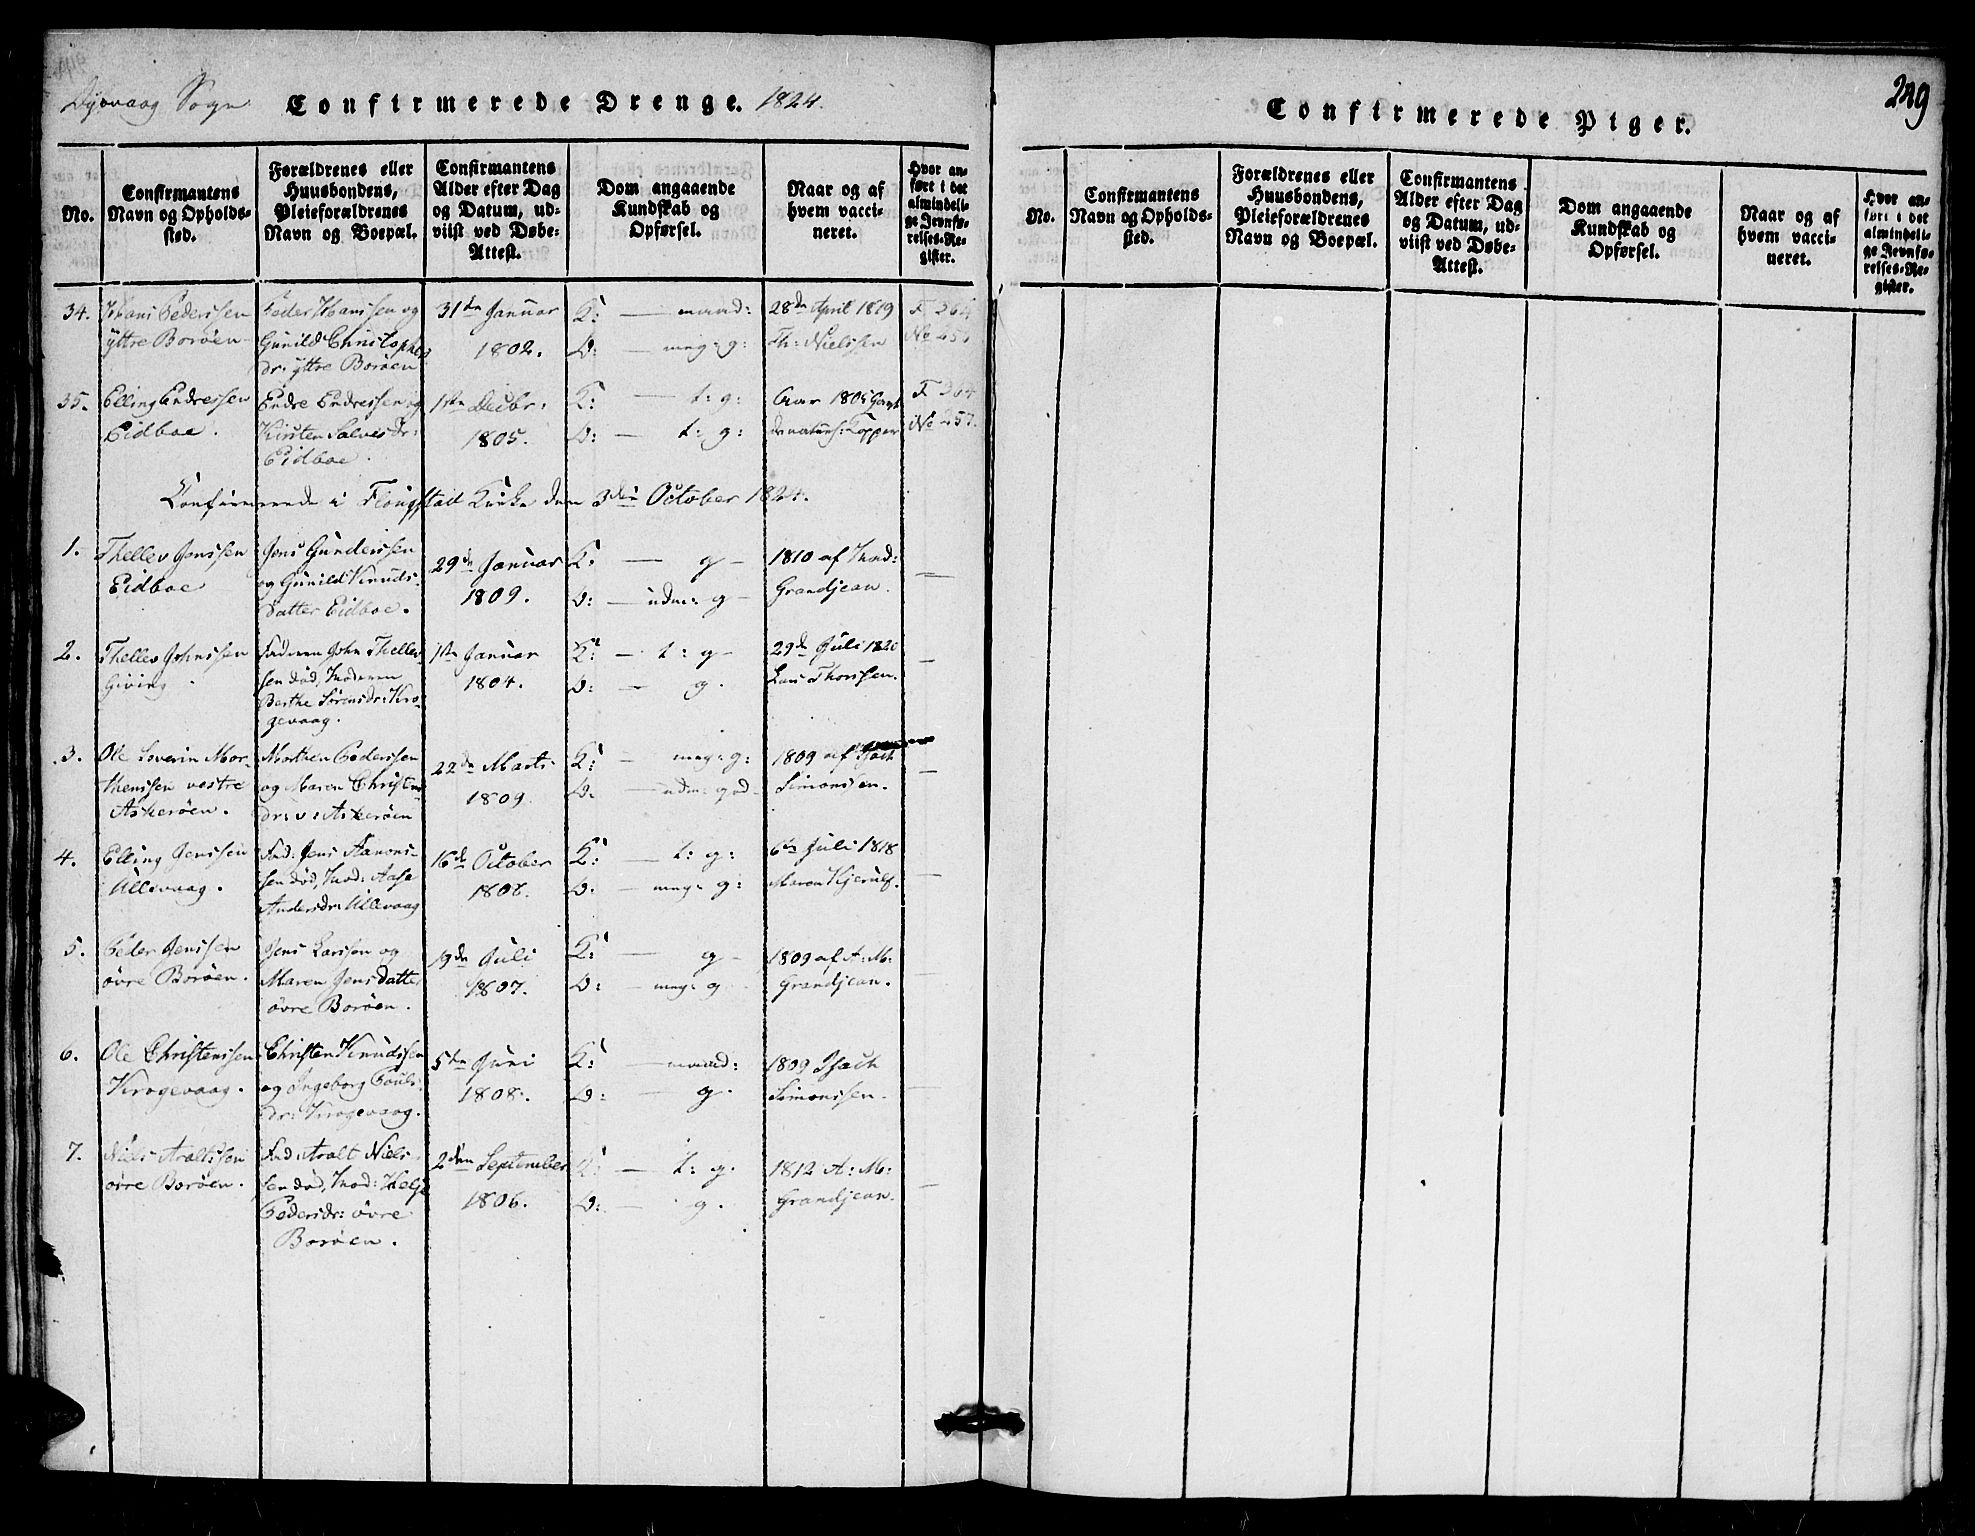 Dypvaag Sogn Confirmerede Drenge. 1824.
No.
Confirmantens
Navn og Opholds-
sted.
Forældrenes eller
Huusbondens,
Pleieforældrenes
Navn og Boepæl.
Confirmantens
Alder efter Dag
og Datum, ud-
viist ved Døbe-
Attest.
Dom angaaende
Kundskab og
Opførsel.
Naar og af
hvem vacci-
neret.
Hvor an-
ført i det
almindeli-
ge Jevnfø-
relses-Re-
gister.
34.
Hans Pederssen
yttre Borøen
Peder Hanssen og
Gunild Christophers
dr: yttre Borøen
31te Januar
1802.
K: — maad:
O: — meg: g:
28de April 1819
Th: Nielssen
F 264
No 257
35.
Elling Endressen
Eidboe.
Endre Endressen og
Kirsten Salvesdr:
Eidboe.
1ste Decbr:
1805.
K: — t: g:
O: — t: g:
Aar 1805 havt
de naturl: Kopper
F 264
No 257.
Confirmerede i Flougstad Kirke den 3die October 1824.
1.
Thellev Jenssen
Eidboe
Jens Gunderssen
og Gunild Knuds-
datter Eidboe.
29de Januar
1809.
K: — g —
O: — udm: g —
1810 af Mad:
Grandjean.
—
2.
Thellev Johnssen
Giving
Faderen John Thellev-
sen død, Moderen
Berthe Sørensdr: Kro-
gevaag.
1ste Januar
1804.
K: — t: g —
O: — g.
29de Juli 1820
Lars Thorssen.
—
3.
Ole Severin Mor-
thenssen vestre
Askerøen.
Morthen Pederssen
og Maren Christens
dr: v: Askerøen
22de Marts
1809.
K: — meg: g:
O: — udm: god —
1809 af Isach
Simonssen.
—
4.
Elling Jenssen
Ullevaag.
Fad: Jens Aanons-
sen død, Mod: Aase
Andersdr: Ullevaag
16de October
1806.
K: — t: g:
O: — meg: g:
6te Juli 1818
Maren Kjerulf.
—
5.
Peder Jenssen
øvre Borøen.
Jens Larssen og
Maren Jensdatter
øvre Borøen.
19de Juli
1807.
K: g —
O: — meg: g
1809 af A: M:
Grandjean.
—
6.
Ole Christenssen
Krogevaag.
Christen Knudssen
og Ingeborg Pouls-
dr: Krogevaag.
5te Juni
1808.
K: — maad:
O: — g.
1809 Isach
Simonssen.
—
7.
Niels Aroltssen
øvre Borøen.
Fad: Arolt Niels-
sen død, Mod: Helje
Pedersdr: øvre
Borøen.
2den September
1806.
K: — t: g.
O: — g.
1812 A: M:
Grandjean.
—
Confirmerede Piger.
249
No.
Confirmantens
Navn og Opholds-
sted.
Forældrenes eller
Huusbondens,
Pleieforældrenes
Navn og Boepæl.
Confirmantens
Alder efter Dag
og Datum, ud-
viist ved Døbe-
Attest.
Dom angaaende
Kundskab og
Opførsel.
Naar og af
hvem vacci-
neret.
Hvor an-
ført i det
almindeli-
ge Jevnfø-
relses-Re-
gister.